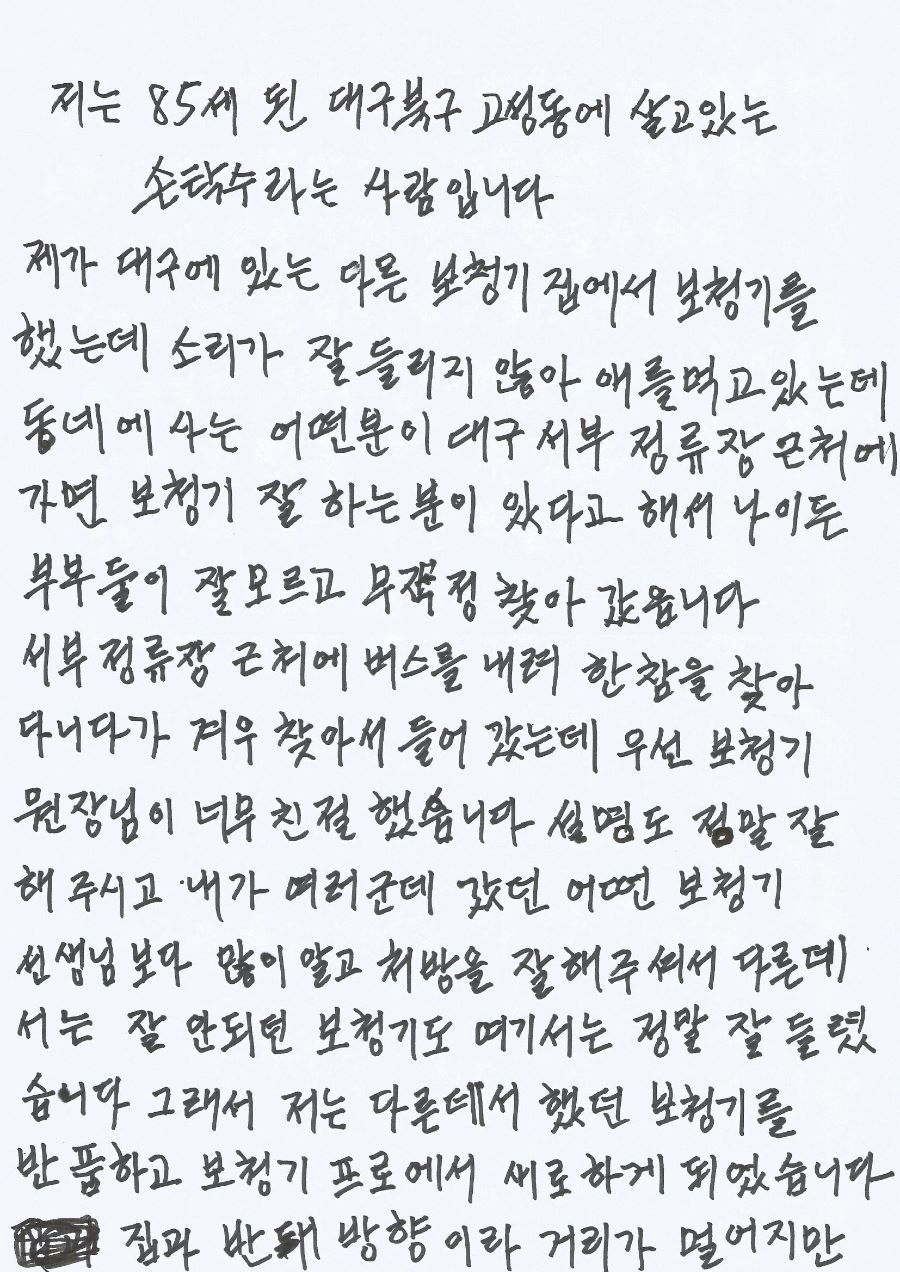 저는 85세 된 대구북구 고성동에 살고있는
손탁수라는 사람입니다
제가 대구에 있는 다른 보청기 집에서 보청기를
했는데 소리가 잘 들리지 않아 애를먹고있는데
동네에 사는 어떤분이 대구 서부 정류장 근처에
가면 보청기 잘 하는분이 있다고 해서 나이든
부부둘이 잘모르고 무작정 찾아 갔읍니다
서부정류장 근처에 버스를 내려 한참을 찾아
다니다가 겨우 찾아서 들어 갔는데 우선 보청기
원장님이 너무 친절 했습니다 설명도 정말 잘
해 주시고 내가 여러군데 갔던 어떤 보청기
선생님보다 많이 알고 처방을 잘해주셔서 다른데
서는 잘 안되던 보청기도 여기서는 정말 잘 들렸
습니다 그래서 저는 다른데서 했던 보청기를
반품하고 보청기 프로에서 새로하게 되었습니다
집과 반대 방향 이라 거리가 멀어지만